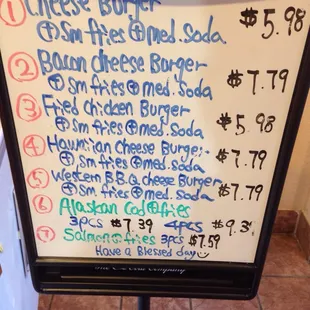 ① Cheese Burger
⊕ Sm fries ⊕ med. Soda $5.98
② Bacon cheese Burger
⊕ Sm fries ⊕ med. Soda $7.79
③ Fried chicken Burger
⊕ Sm fries ⊕ med. Soda $5.98
④ Hawaiian cheese Burger
⊕ Sm fries ⊕ med. Soda $7.79
⑤ Western B.B.Q cheese Burger
⊕ Sm fries ⊕ med. Soda $7.79
⑥ Alaskan Cod ⊕ fries
3pcs $7.39 4pcs $9.3
⑦ Salmon ⊕ fries 3pcs $7.59
Have a Blessed day